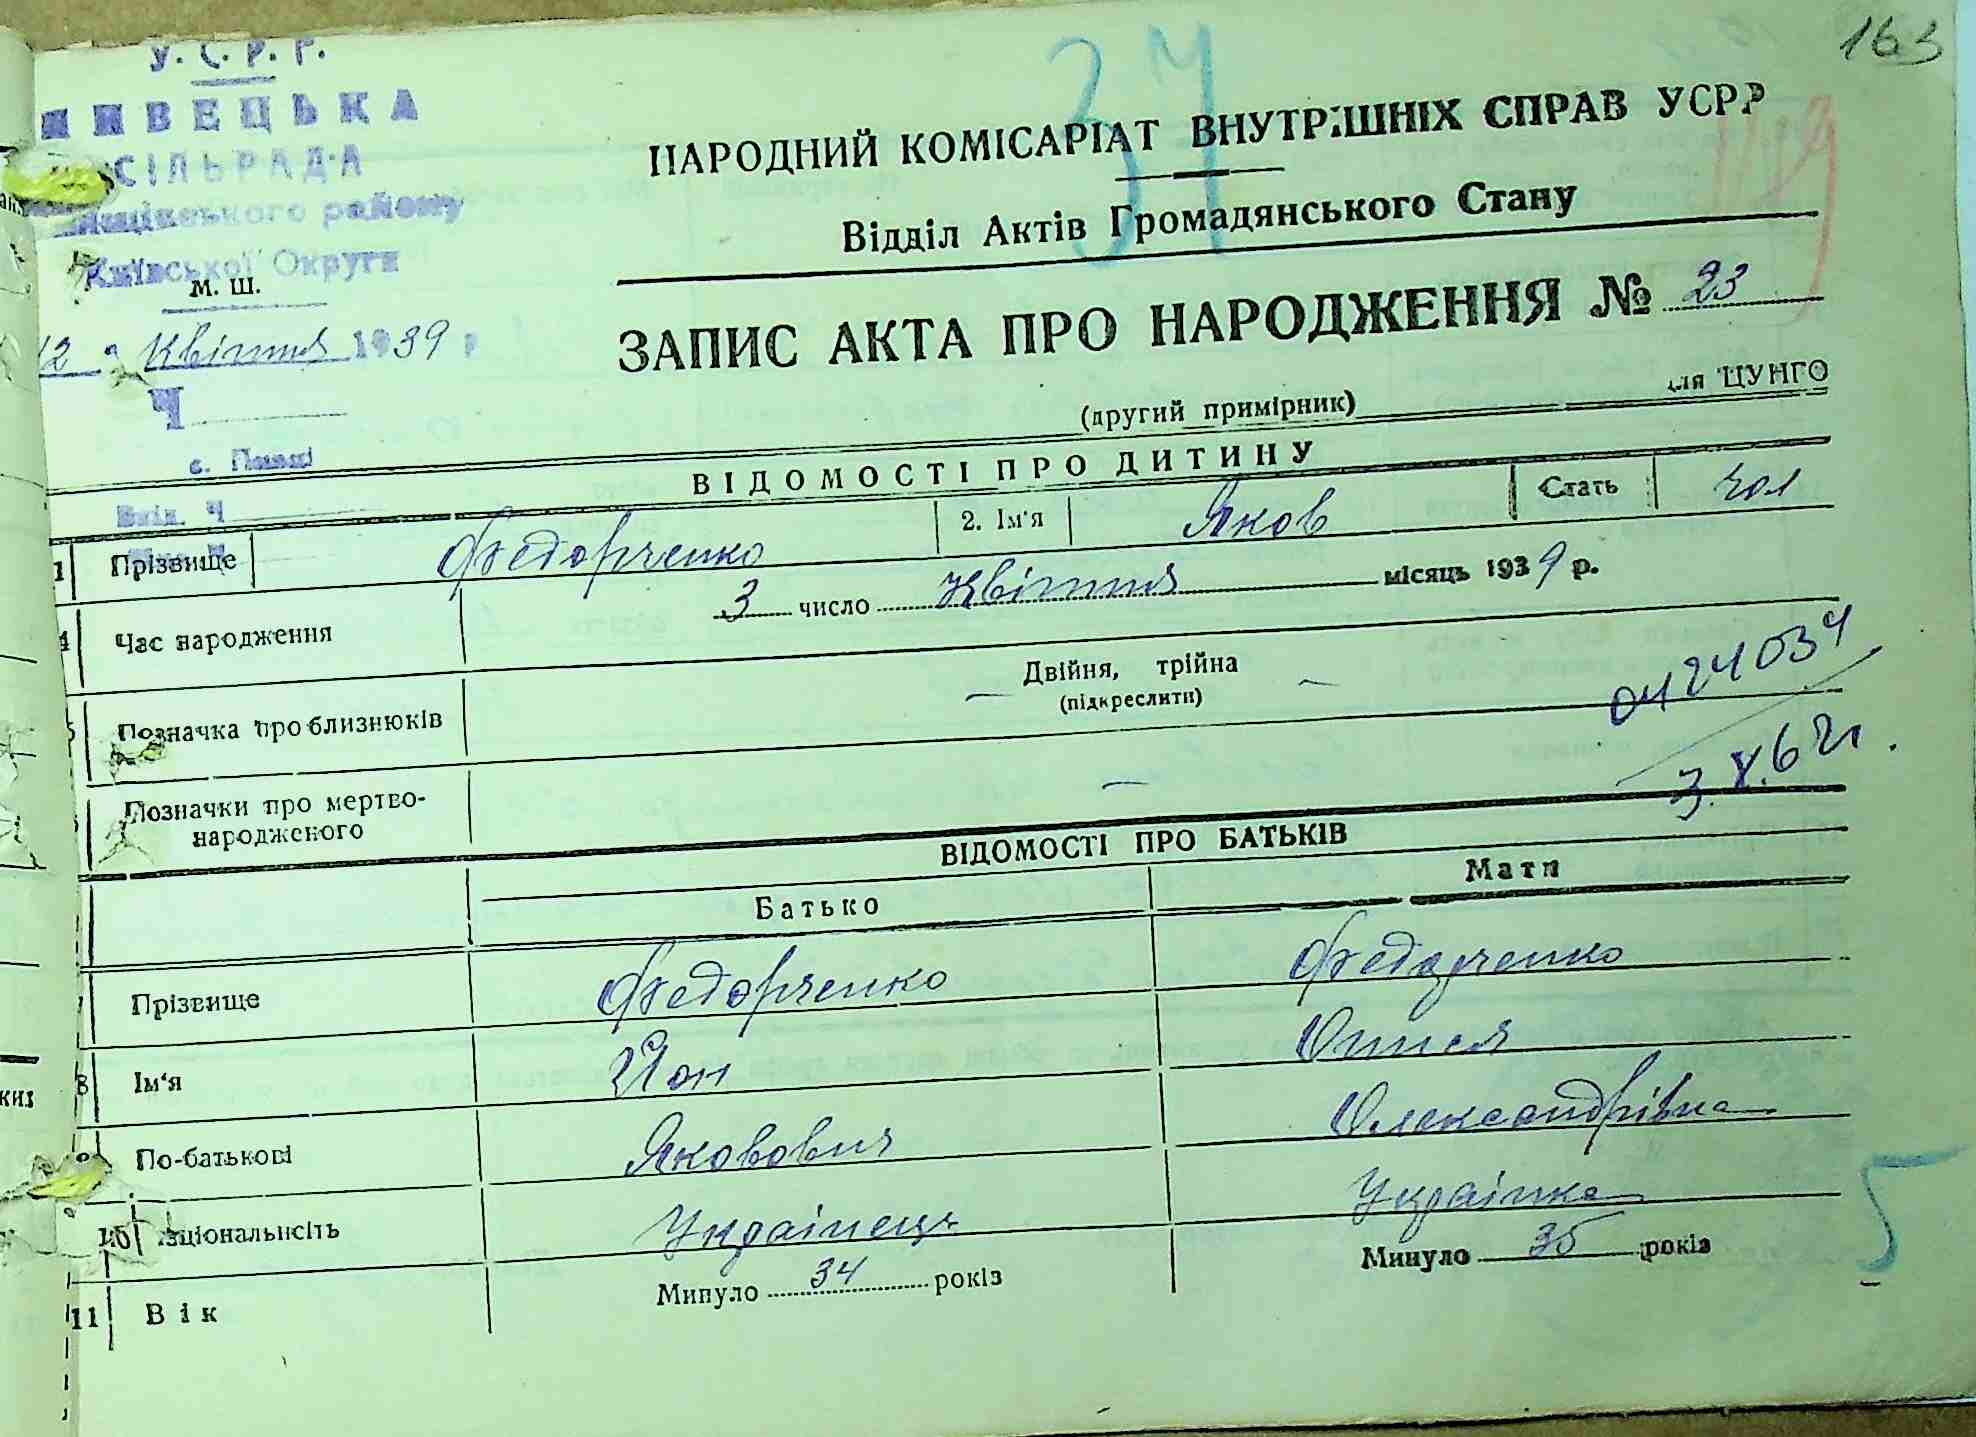 163
37
У. С. Р. Р.
СІЛЬРАДА
району
Київської Округи
м. ш.
12 квітня 1939 р
Ч
НАРОДНИЙ КОМІСАРІАТ ВНУТРІШНІХ СПРАВ УСРР
Відділ Актів Громадянського Стану
ЗАПИС АКТА ПРО НАРОДЖЕННЯ № 23
(другий примірник) для ЦУНГО
ВІДОМОСТІ ПРО ДИТИНУ
Вхід. Ч
1 Прізвище Федорченко 2. Ім'я Яков Стать чол
4 Час народження 3 число квітня місяць 1939 р.
Позначка про близнюків Двійня, трійна
(підкреслити)
0424034
Позначки про мертво-
народженого
3.X.62г.
ВІДОМОСТІ ПРО БАТЬКІВ
Батько Мати
7 Прізвище Федорченко Федорченко
8 Ім'я Йон
9 По-батькові Якович Олександрівна
10 Національність Українець Українка
11 Вік Минуло 34 років Минуло 35 років
5